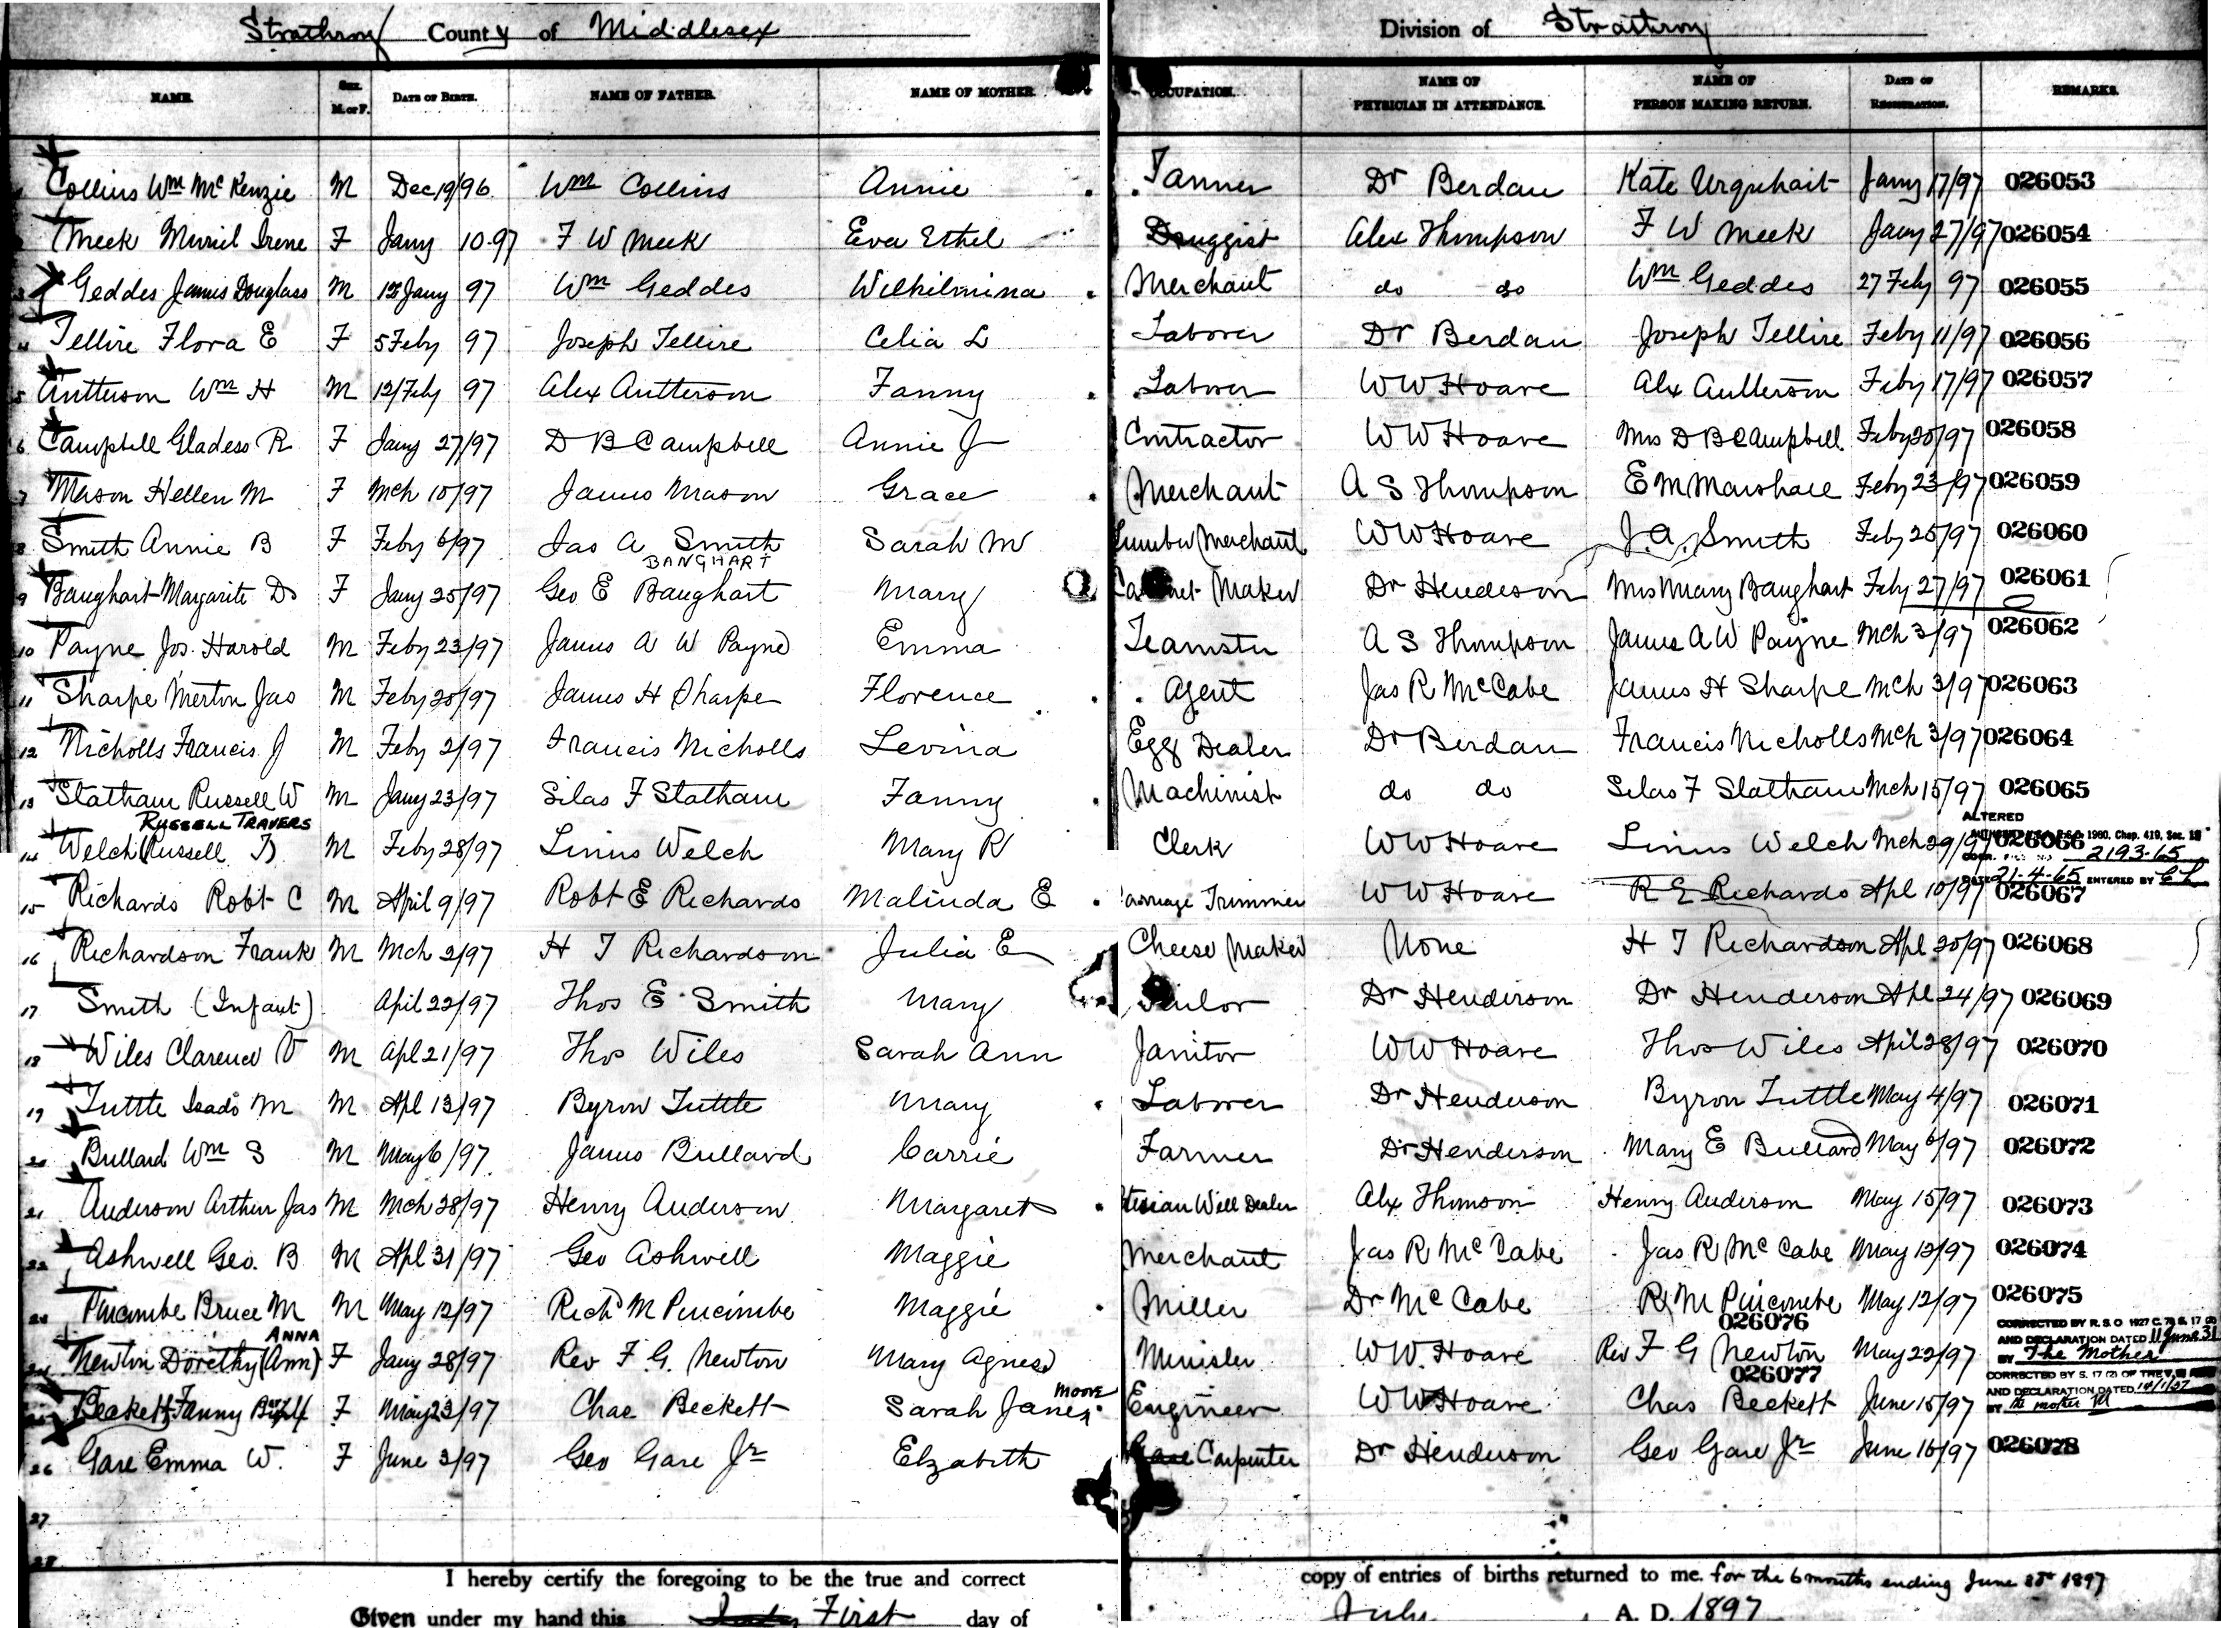 Strathroy County of Middlesex Division of Strathroy
NAME SEX. M. or F. DATE OF BIRTH. NAME OF FATHER. NAME OF MOTHER OCCUPATION. NAME OF PHYSICIAN IN ATTENDANCE. NAME OF PERSON MAKING RETURN. DATE OF REGISTRATION. REMARKS.
Collins Wm McKenzie M Dec 19/96 Wm Collins Annie Tanner Dr Berdan Kate Urquhart Jany 17/97 026053
Meek Muriel Irene F Jany 10-97 F W Meek Eva Ethel Druggist Alex Thompson F W Meek Jany 27/97 026054
3 Geddes James Douglass M 12 Jany 97 Wm Geddes Wilhilmina Merchant do do Wm Geddes 27 Feby 97 026055
4 Tellire Flora E F 5 Feby 97 Joseph Tellire Celia L Laborer Dr Berdan Joseph Tellire Feby 11/97 026056
5 Autterson Wm H M 12/Feby 97 Alex Autterson Fanny Laborer W W Hoare Alex Autterson Feby 17/97 026057
6 Campbell Gladess R F Jany 27/97 D B Campbell Annie J Contractor W W Hoare Mrs D B Campbell Feby 20/97 026058
7 Mason Hellen M F Mch 10/97 James Mason Grace Merchant A S Thompson E M Marshall Feby 23/97 026059
8 Smith Annie B F Feby 6/97 Jas A Smith Sarah M Lumber Merchant W W Hoare J. A. Smith Feby 25/97 026060
BANGHART
9 Banghart Margarite D F Jany 25/97 Geo E Banghart Mary Cabinet Maker Dr Henderson Mrs Mary Banghart Feby 27/97 026061
10 Payne Jos. Harold M Feby 23/97 James A W Payne Emma Teamster A S Thompson James A W Payne Mch 3/97 026062
11 Sharpe Merton Jas M Feby 20/97 James H Sharpe Florence Agent Jas R McCabe James H Sharpe Mch 3/97 026063
12 Nicholls Francis J M Feby 2/97 Francis Nicholls Levina Egg Dealer Dr Berdan Francis Nicholls Mch 3/97 026064
13 Statham Russell W M Jany 23/97 Silas F Statham Fanny Machinist do do Silas F Statham Mch 15/97 026065
RUSSELL TRAVERS ALTERED
14 Welch (Russell T) M Feby 28/97 Linus Welch Mary R Clerk W W Hoare Linus Welch Mch 29/97 026066 1960, Chap. 419, Sec.
2193-65
21-4-65 ENTERED BY
15 Richards Robt C M April 9/97 Robt E Richards Malinda E Carriage Trimmer W W Hoare R E Richards Apl 10/97 026067
16 Richardson Frank M Mch 2/97 H T Richardson Julia E Cheese Maker None H T Richardson Apl 20/97 026068
17 Smith (Infant) April 22/97 Thos E Smith Mary Tailor Dr Henderson Dr Henderson Apl 24/97 026069
18 Wiles Clarence V M Apl 21/97 Thos Wiles Sarah Ann Janitor W W Hoare Thos Wiles April 28/97 026070
19 Tuttle Isado M M Apl 13/97 Byron Tuttle Mary Laborer Dr Henderson Byron Tuttle May 4/97 026071
20 Bullard Wm S M May 6/97 James Bullard Carrie Farmer Dr Henderson Mary E Bullard May 6/97 026072
21 Anderson Arthur Jas M Mch 28/97 Henry Anderson Margaret tesian Well Dealer Alx Thomson Henry Anderson May 15/97 026073
22 Ashwell Geo. B M Apl 31/97 Geo Ashwell Maggie Merchant Jas R McCabe Jas R McCabe May 12/97 026074
23 Pincombe Bruce M M May 12/97 Richd M Pincombe Maggie Miller Dr McCabe R M Pincombe May 12/97 026075
ANNA 026076 CORRECTED BY R.S.O 1927 C. 78 S. 17 (2)
24 Newton Dorethy (Ann) F Jany 28/97 Rev F. G. Newton Mary Agnes Minister W W. Hoare Rev F G Newton May 22/97 AND DECLARATION DATED 11 June 31
BY The Mother
MOORE 026077 CORRECTED BY S. 17 (2) OF THE V.S.
25 Beckett Fanny F May 23/97 Chas Beckett Sarah Jane Engineer W W Hoare Chas Beckett June 15/97 AND DECLARATION DATED
BY the mother
26 Gare Emma W. F June 3/97 Geo Gare Jr Elzabeth Gare Carpenter Dr Henderson Geo Gare Jr June 16/97 026078
27
28
I hereby certify the foregoing to be the true and correct copy of entries of births returned to me. for the 6 months ending June 30th 1897
Given under my hand this First day of July A. D. 1897